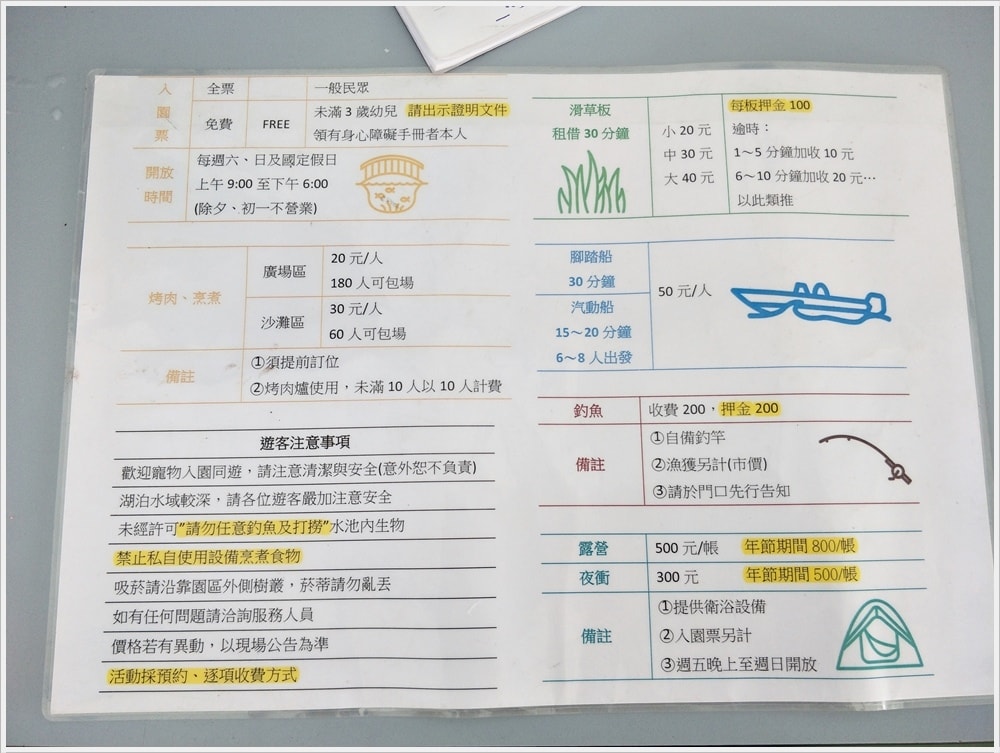 入園票
全票 一般民眾
免費 FREE
未滿 3 歲幼兒 請出示證明文件
領有身心障礙手冊者本人
開放時間
每週六、日及國定假日
上午 9:00 至下午 6:00
(除夕、初一不營業)
烤肉、烹煮
廣場區
20 元/人
180 人可包場
沙灘區
30 元/人
60 人可包場
備註
①須提前訂位
②烤肉爐使用，未滿 10 人以 10 人計費
遊客注意事項
歡迎寵物入園同遊，請注意清潔與安全(意外恕不負責)
湖泊水域較深，請各位遊客嚴加注意安全
未經許可"請勿任意釣魚及打撈"水池內生物
禁止私自使用設備烹煮食物
吸菸請沿靠園區外側樹叢，菸蒂請勿亂丟
如有任何問題請洽詢服務人員
價格若有異動，以現場公告為準
活動採預約、逐項收費方式
滑草板
租借 30 分鐘
小 20 元
中 30 元
大 40 元
每板押金 100
逾時：
1～5 分鐘加收 10 元
6～10 分鐘加收 20 元…
以此類推
腳踏船
30 分鐘
汽動船
15～20 分鐘
6～8 人出發
50 元/人
釣魚 收費 200，押金 200
備註
①自備釣竿
②漁獲另計(市價)
③請於門口先行告知
露營 500 元/帳 年節期間 800/帳
夜衝 300 元 年節期間 500/帳
備註
①提供衛浴設備
②入園票另計
③週五晚上至週日開放